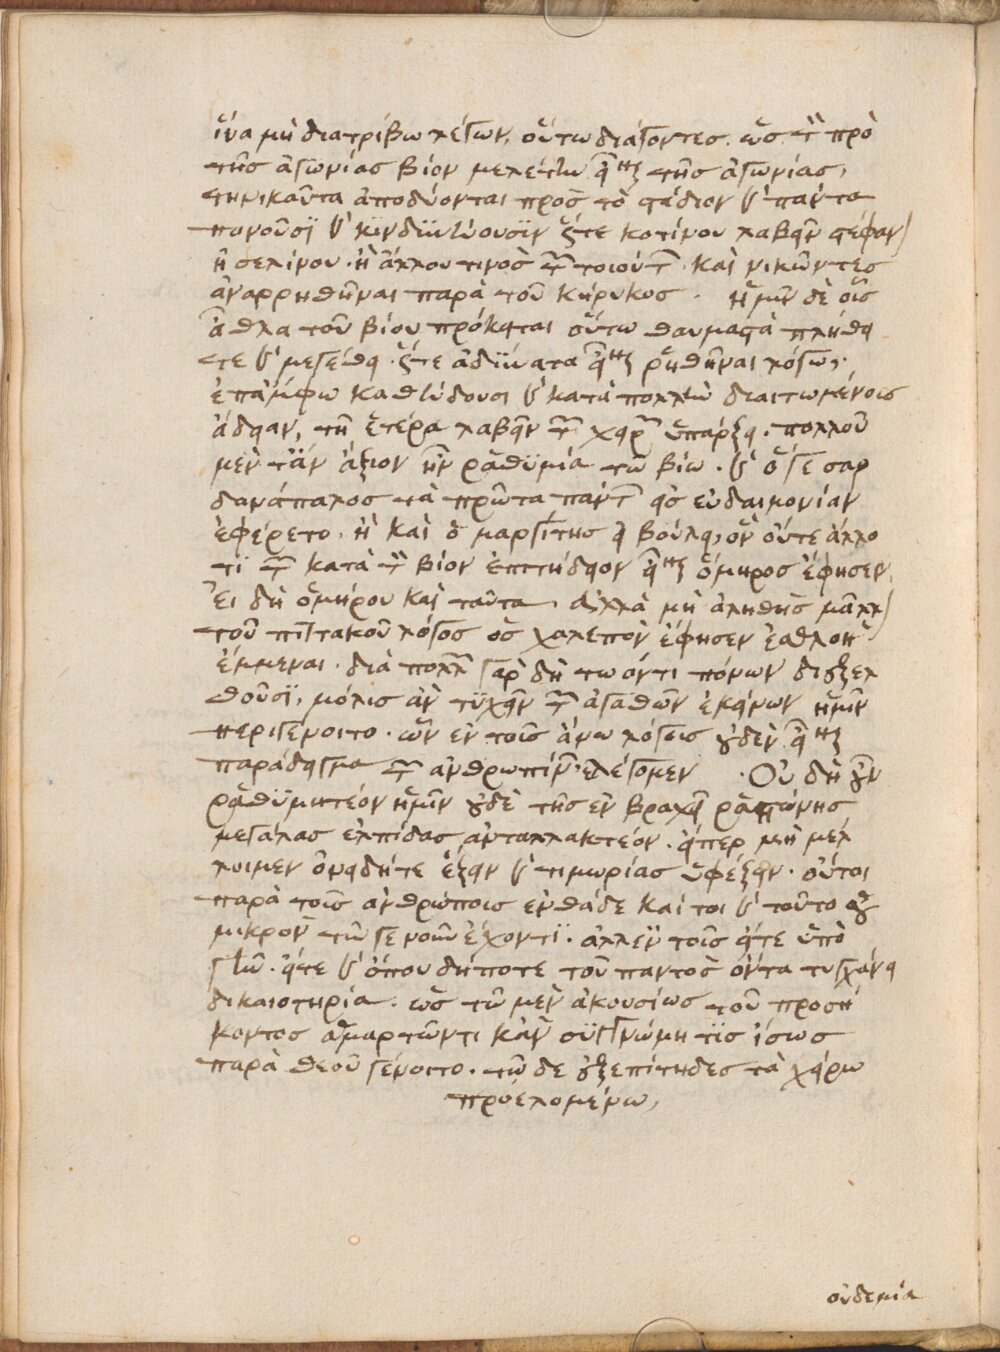 ἵνα μὴ διατρίβω λέγων, οὕτω διάγοντες. ὡς τὸν πρὸ
τῆς ἀγωνίας βίον μελέτην εἶναι τῆς ἀγωνίας,
τηνικαῦτα ἀποδύονται πρὸς τὸ στάδιον καὶ πάντα
πονοῦσϊ καὶ κϊνδϋνεύουσϊν ὥστε κοτίνου λαβεῖν στέφανον
ἢ σελίνου. ἢ ἄλλου τινὸς τῶν τοιούτων. καὶ νικῶντες
ἀναρρηθῆναι παρὰ τοῦ κήρυκος. ἡμῖν δὲ οἷς
ἆθλα τοῦ βίου πρόκειται οὕτω θαυμαστὰ πλήθει
τε καὶ μεγέθει. ὥστε ἀδϋνατα εἶναι ῥηθῆναι λόγῳ,.
ἐπάμφω καθεύδουσι καὶ κατὰ πολλὴν διαιτωμένοις
ἄδειαν, τῇ ἑτέρα λαβεῖν τῶν χειρῶν ὑπάρξει. πολλοῦ
μὲν τἂν ἄξιον ἦν ῥαθϋμία τῷ βίῳ. καὶ ὅ γε σαρ
δανάπαλος τὰ πρῶτα πάντων εἰς εὐδαιμονίαν
ἐφέρετο. ἢ καὶ ὁ μαργίτης εἰ βούλει, ὃν οὔτε ἄλλο
τϊ τῶν κατὰ τὸν βίον ἐπιτήδειον εἶναι ὅμηρος ἔφησεν,
εἰ δὴ ὁμήρου καὶ ταῦτα. ἀλλὰ μὴ ἀληθὴς μᾶλλον
τοῦ πιττακοῦ λόγος ὃς χαλεπὸν ἔφησεν ἐσθλὸν
ἔμμεναι. διὰ πολλῶν γὰρ δὴ τω ὄντι πόνων διεξελ
θοῦσϊ, μόλις ἂν τϋχεῖν τῶν ἀγαθῶν ἐκείνων ἡμῖν
περιγένοιτο. ὧν ἐν τοῖς ἄνω λόγοις οὐδὲν εἶναι
παράδειγμα τῶν ἀνθρωπίνων ἐλέγομεν. Οὐ δὴ οὖν
ῥαθϋμητέον ἡμῖν οὐδὲ τῆς ἐν βραχεῖ ῥαστώνης
μεγάλας ἐλπίδας ἀνταλλακτέον. εἴπερ μὴ μέλ
λοιμεν ὀνείδητε ἕξειν καὶ τιμωρίας ὑφέξειν. οὔτοι
παρὰ τοῖς ἀνθρώποις ἐνθάδε καί τοι καὶ τοῦτο οὐ
μικρὸν τῷ γε νοῦν ἔχοντϊ. ἀλλ' ἐν τοῖς εἴτε ὑπὸ
γῆν. εἴτε καὶ ὅπου δήποτε τοῦ παντὸς ὄντα τυγχάνει
δικαιοτηρία. ὡς τῷ μὲν ἀκουσίως τοῦ προσή
κοντος ἁμαρτῶντι κἂν σϋγγνώμη τϊς ἴσως
παρὰ θεοῦ γένοιτο. τῷ δε ἐξεπίτηδες τὰ χείρω
προελομένω,
οὐδεμία